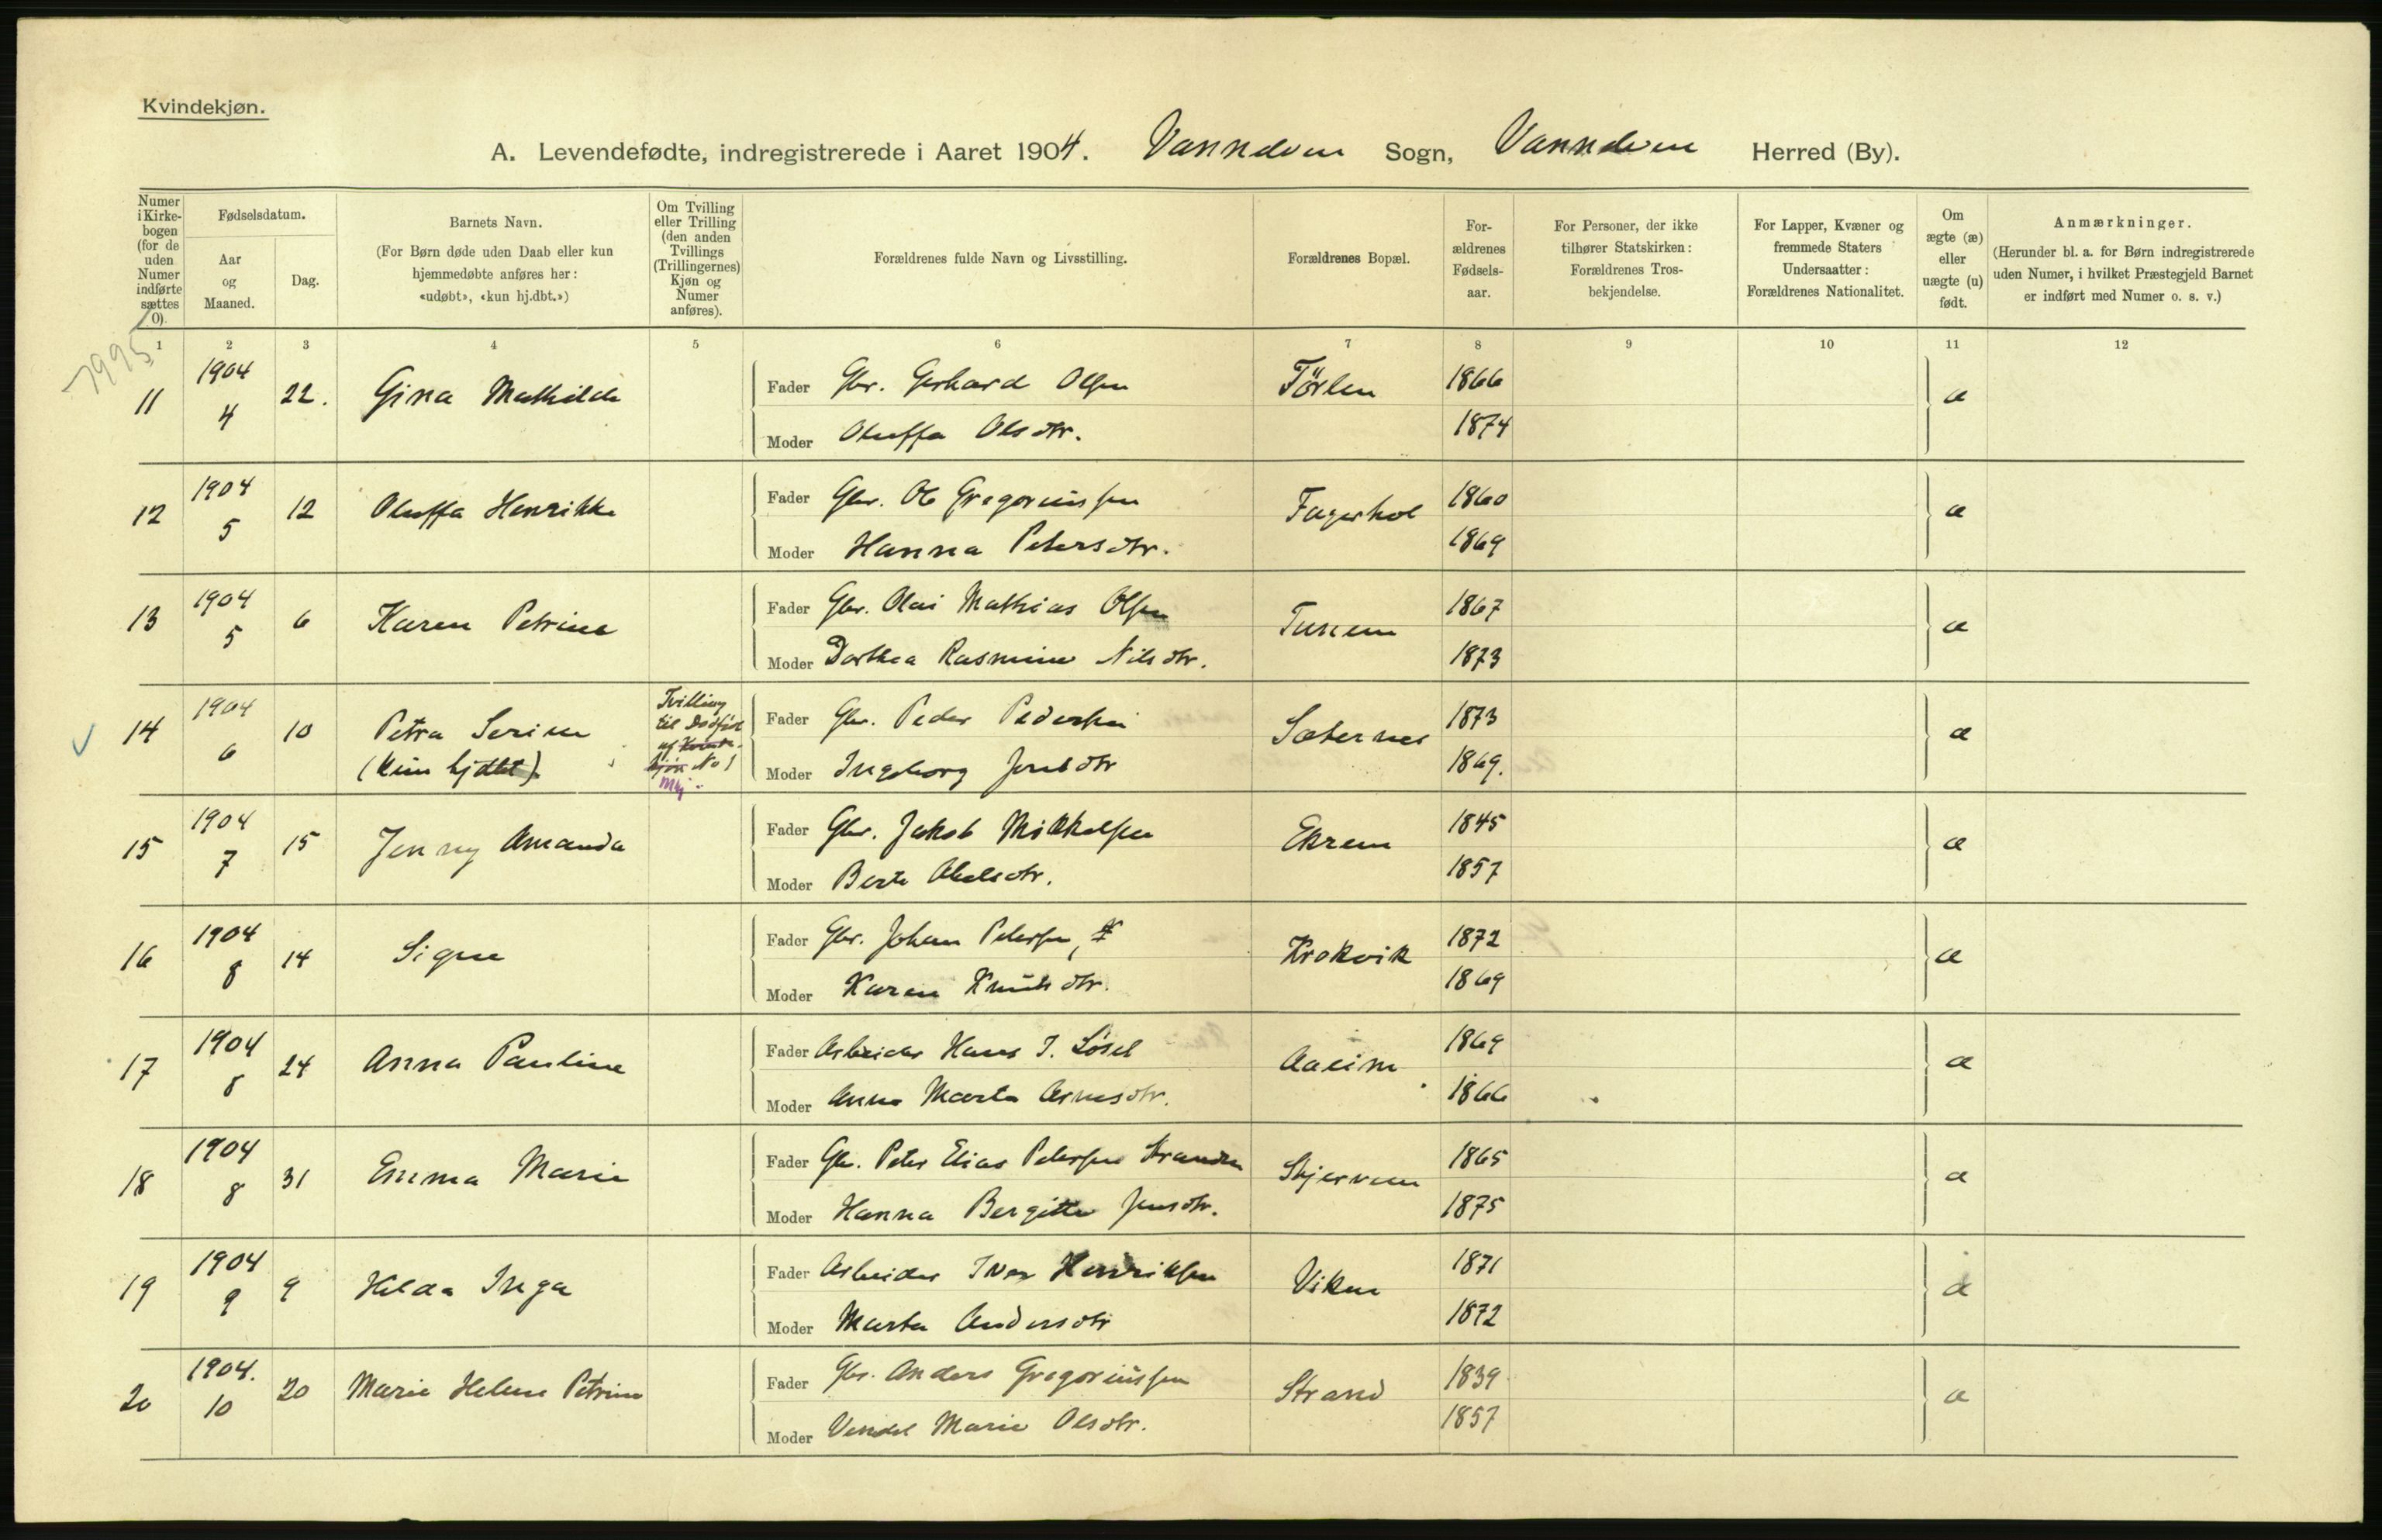 Kvindekjøn.
A. Levendefødte, indregistrerede i Aaret 1904. Vannelven Sogn, Vannelven Herred (By).
Numer i Kirke-bogen (for de uden Numer indførte sættes 0).
Fødselsdatum.
Aar og Maaned.
Dag.
Barnets Navn.
(For Børn døde uden Daab eller kun hjemmedøbte anføres her: «udøbt», «kun hj.dbt.»)
Om Tvilling eller Trilling (den anden Tvillings (Trillingernes) Kjøn og Numer anføres).
Forældrenes fulde Navn og Livsstilling.
Forældrenes Bopæl.
For-ældrenes Fødsels-aar.
For Personer, der ikke tilhører Statskirken: Forældrenes Tros-bekjendelse.
For Lapper, Kvæner og fremmede Staters Undersaatter: Forældrenes Nationalitet.
Om ægte (æ) eller uægte (u) født.
Anmærkninger.
(Herunder bl. a. for Børn indregistrerede uden Numer, i hvilket Præstegjeld Barnet er indført med Numer o. s. v.)
1 2 3 4 5 6 7 8 9 10 11 12
7995
11 1904 4 22. Gina Mathilde Fader Gbr. Gerhard Olsen Förlen 1866 æ
Moder Oluffa Olsdtr. 1874
12 1904 5 12 Oluffa Henrikke Fader Gbr. Ole Gregoriussen Fagerhol 1860 æ
Moder Hanna Petersdtr. 1869
13 1904 5 6 Karen Petrine Fader Gbr. Olai Mathias Olsen Tunem 1867 æ
Moder Dorthea Rasmine Nilsdtr. 1873
14 1904 6 10 Petra Serine (kun hjdbt) Tvilling til Dødfød af Kvindekjøn No 1 Mkj. Fader Gbr. Peder Pedersen Sæternes 1873 æ
Moder Ingeborg Jensdtr 1869.
15 1904 7 15 Jenny Amanda Fader Gbr. Jakob Mikkelsen Ekrem 1845 æ
Moder Berte Abelsdtr. 1857
16 1904 8 14 Signe Fader Gbr. Johan Petersen, Krokvik 1872 æ
Moder Karen Knutsdtr. 1869
17 1904 8 24 Anna Pauline Fader Arbeider Hans J. Løset Aaeim 1869 æ
Moder Anne Marta Arnesdtr. 1866
18 1904 8 31 Emma Marie Fader Gbr. Peter Elias Petersen Stranden Skjervem 1865 æ
Moder Hanna Bergitte Jensdtr. 1875
19 1904 9 9 Hilda Inga Fader Arbeider Iver Henriksen Viken 1871 æ
Moder Marta Andersdtr 1872
20 1904. 10 20 Marie Helene Petrine Fader Gbr. Anders Gregoriussen Strand 1839 æ
Moder Vendel Marie Olsdtr. 1857